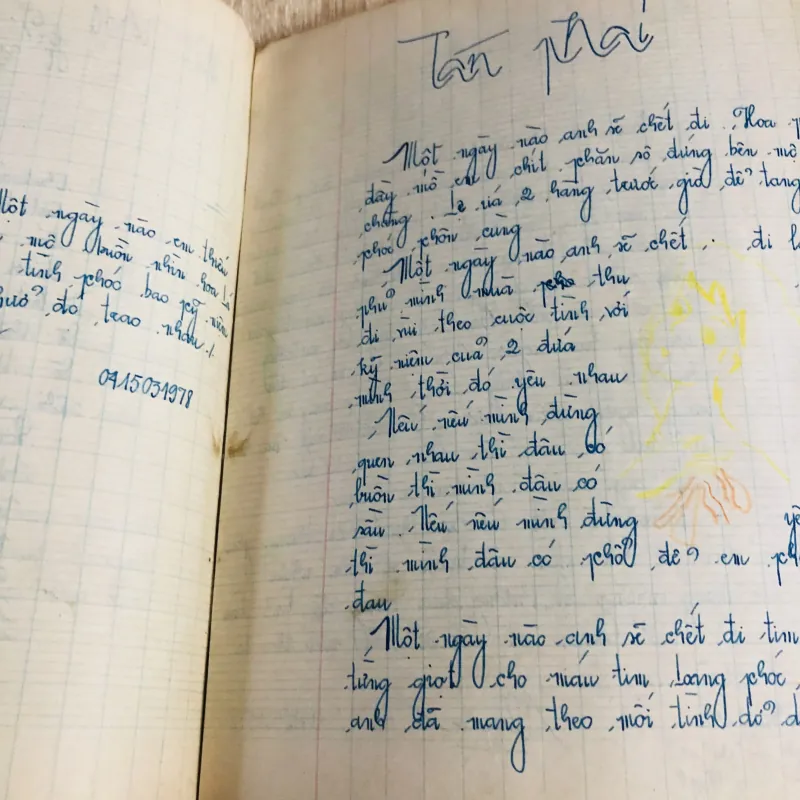 Một ngày nào em thiếu
mồ buồn nhìn hoa lá
tình phóc bao kỹ niên
đỡ trao nhau.!
0415031978
Tàn phai
Một ngày nào anh sẽ chết đi. Hoa
đầy mồ em chít phăn sô đứng bên mộ
chồng. Lệ 2 hàng trước giờ để tang
phóc phồn cùng
Một ngày nào anh sẽ chết.. đi
phủ mình mùa thu
đi vùi theo cuộc tình với
kỹ niềm cuả 2 đứá
mình thời đó yêu nhau
Nếu nếu mình đừng
quen nhau thì đâu có
buồn thì mình đâu có
sầu. Nếu nếu mình đừng
thì mình đâu có phỏ để em
đau
Một ngày nào anh sẽ chết đi tim
từng giọt cho máu tim loang phóc
anh đã mang theo mối tình dở